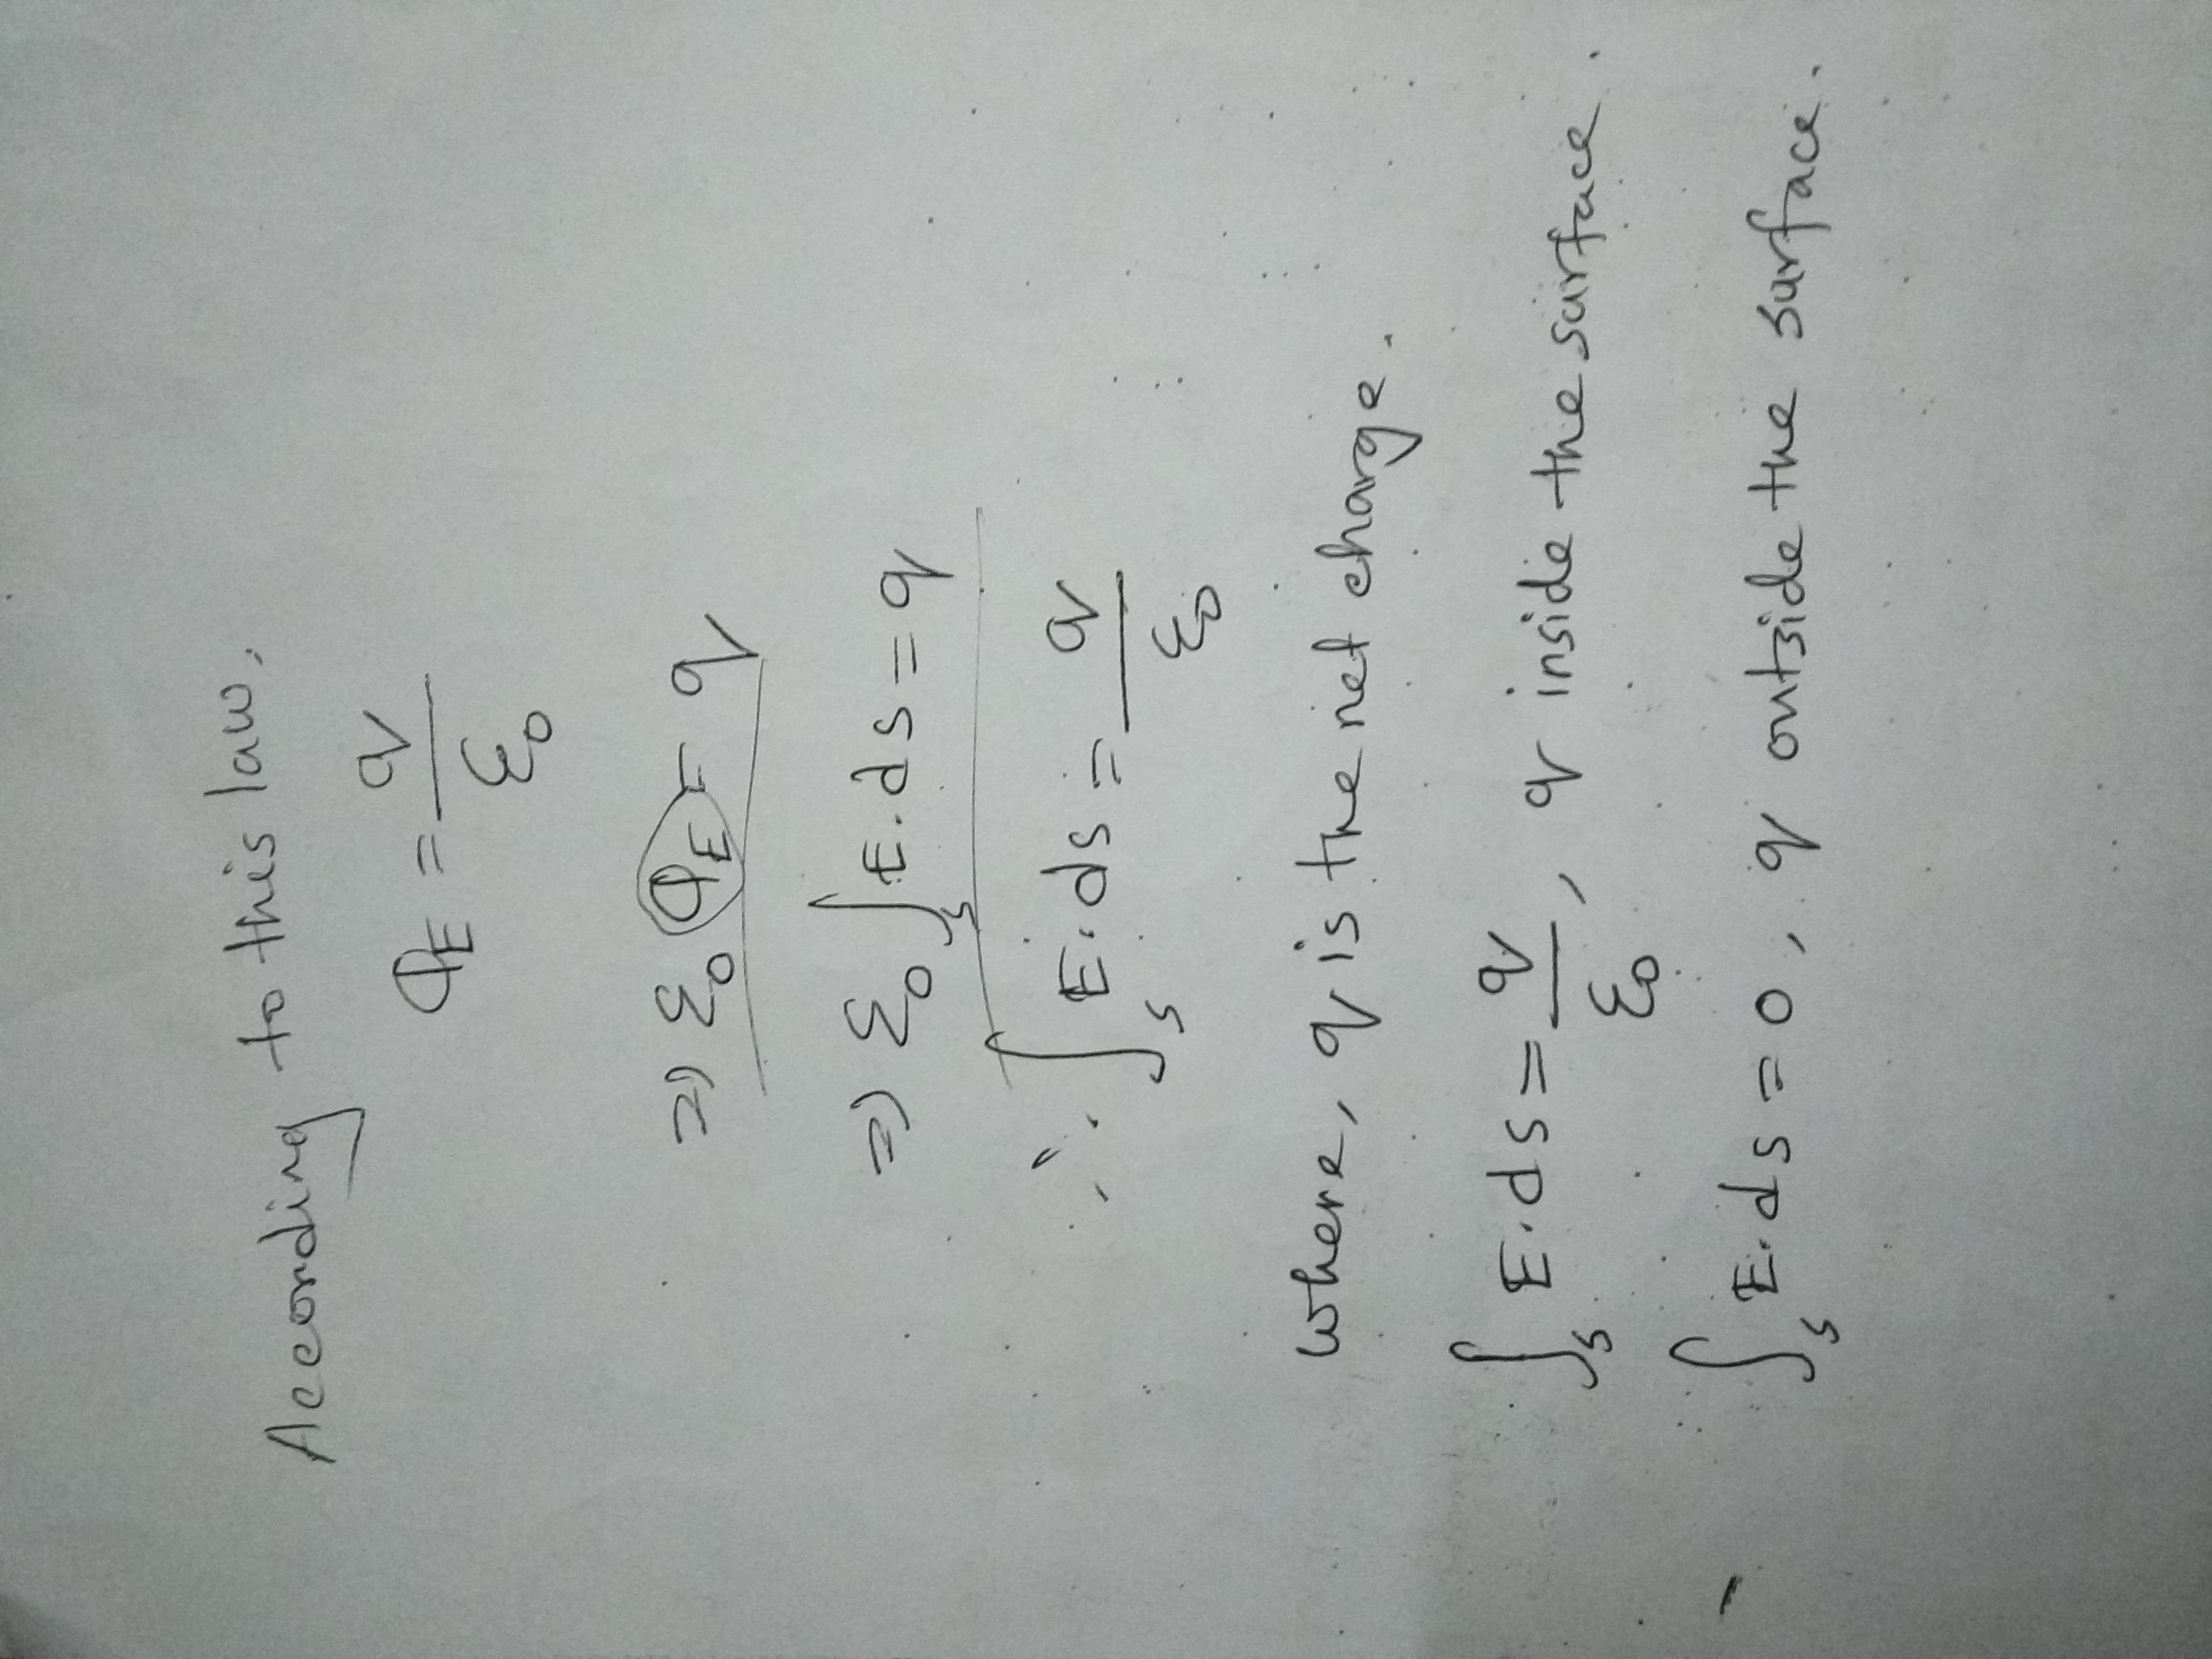 According to this law,
Φ_E = q/ε₀
⇒ ε₀ Φ_E = q
⇒ ε₀ ∫_s E.ds = q
∴ ∫_s E.ds = q/ε₀
where, q is the net charge.
∫_s E.ds = q/ε₀, q inside the surface.
∫_s E.ds = 0, q outside the surface.